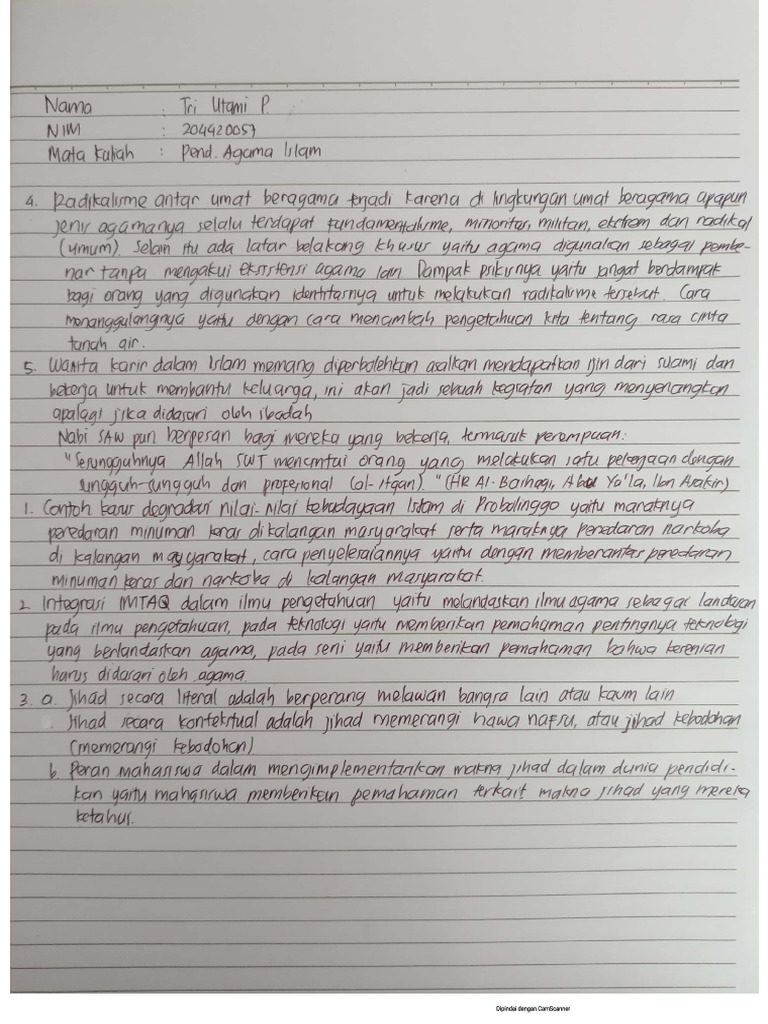 Nama : Tri Utami P.
NIM : 204420057
Mata Kuliah : Pend. Agama Islam
4. Radikalisme antar umat beragama terjadi karena di lingkungan umat beragama apapun
jenis agamanya selalu terdapat fundamentalisme, minoritas, militan, ekstrem dan radikal
(umum). Selain itu ada latar belakang khusus yaitu agama digunakan sebagai pembe-
nar tanpa mengakui eksistensi agama lain. Dampak psikisnya yaitu sangat berdampak
bagi orang yang digunakan identitasnya untuk melakukan radikalisme tersebut. Cara
menanggulangnya yaitu dengan cara menambah pengetahuan kita tentang rasa cinta
tanah air.
5. Wanita karir dalam Islam memang diperbolehkan asalkan mendapatkan ijin dari suami dan
bekerja untuk membantu keluarga, ini akan jadi sebuah kegiatan yang menyenangkan
apalagi jika didasari oleh ibadah
Nabi SAW pun berpesan bagi mereka yang bekerja, termasuk perempuan:
"Sesungguhnya Allah SWT mencintai orang yang melakukan satu pekerjaan dengan
sungguh-sungguh dan profesional (al-itqan)." (HR Al-Baihaqi, Abu Ya'la, Ibn Asakir)
1. Contoh kasus degradasi nilai-nilai kebudayaan Islam di Probolinggo yaitu maraknya
peredaran minuman keras di kalangan masyarakat serta maraknya peredaran narkoba
di kalangan masyarakat, cara penyelesaiannya yaitu dengan memberantas peredaran
minuman keras dan narkoba di kalangan masyarakat.
2. Integrasi IMTAQ dalam ilmu pengetahuan yaitu melandaskan ilmu agama sebagai landasan
pada ilmu pengetahuan, pada teknologi yaitu memberikan pemahaman pentingnya teknologi
yang berlandaskan agama, pada seni yaitu memberikan pemahaman bahwa kesenian
harus didasari oleh agama.
3. a. Jihad secara literal adalah berperang melawan bangsa lain atau kaum lain
Jihad secara kontekstual adalah jihad memerangi hawa nafsu, atau jihad kebodohan
(memerangi kebodohan)
b. Peran mahasiswa dalam mengimplementasikan makna jihad dalam dunia pendidi-
kan yaitu mahasiswa memberikan pemahaman terkait makna jihad yang mereka
ketahui.
Dipindai dengan CamScanner